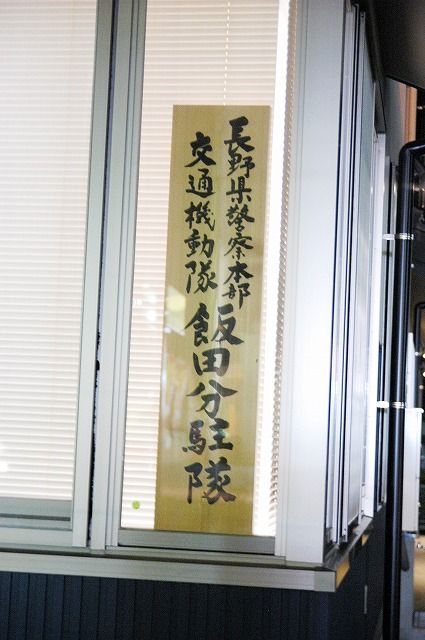 長野県警察本部
交通機動隊
飯田分駐隊